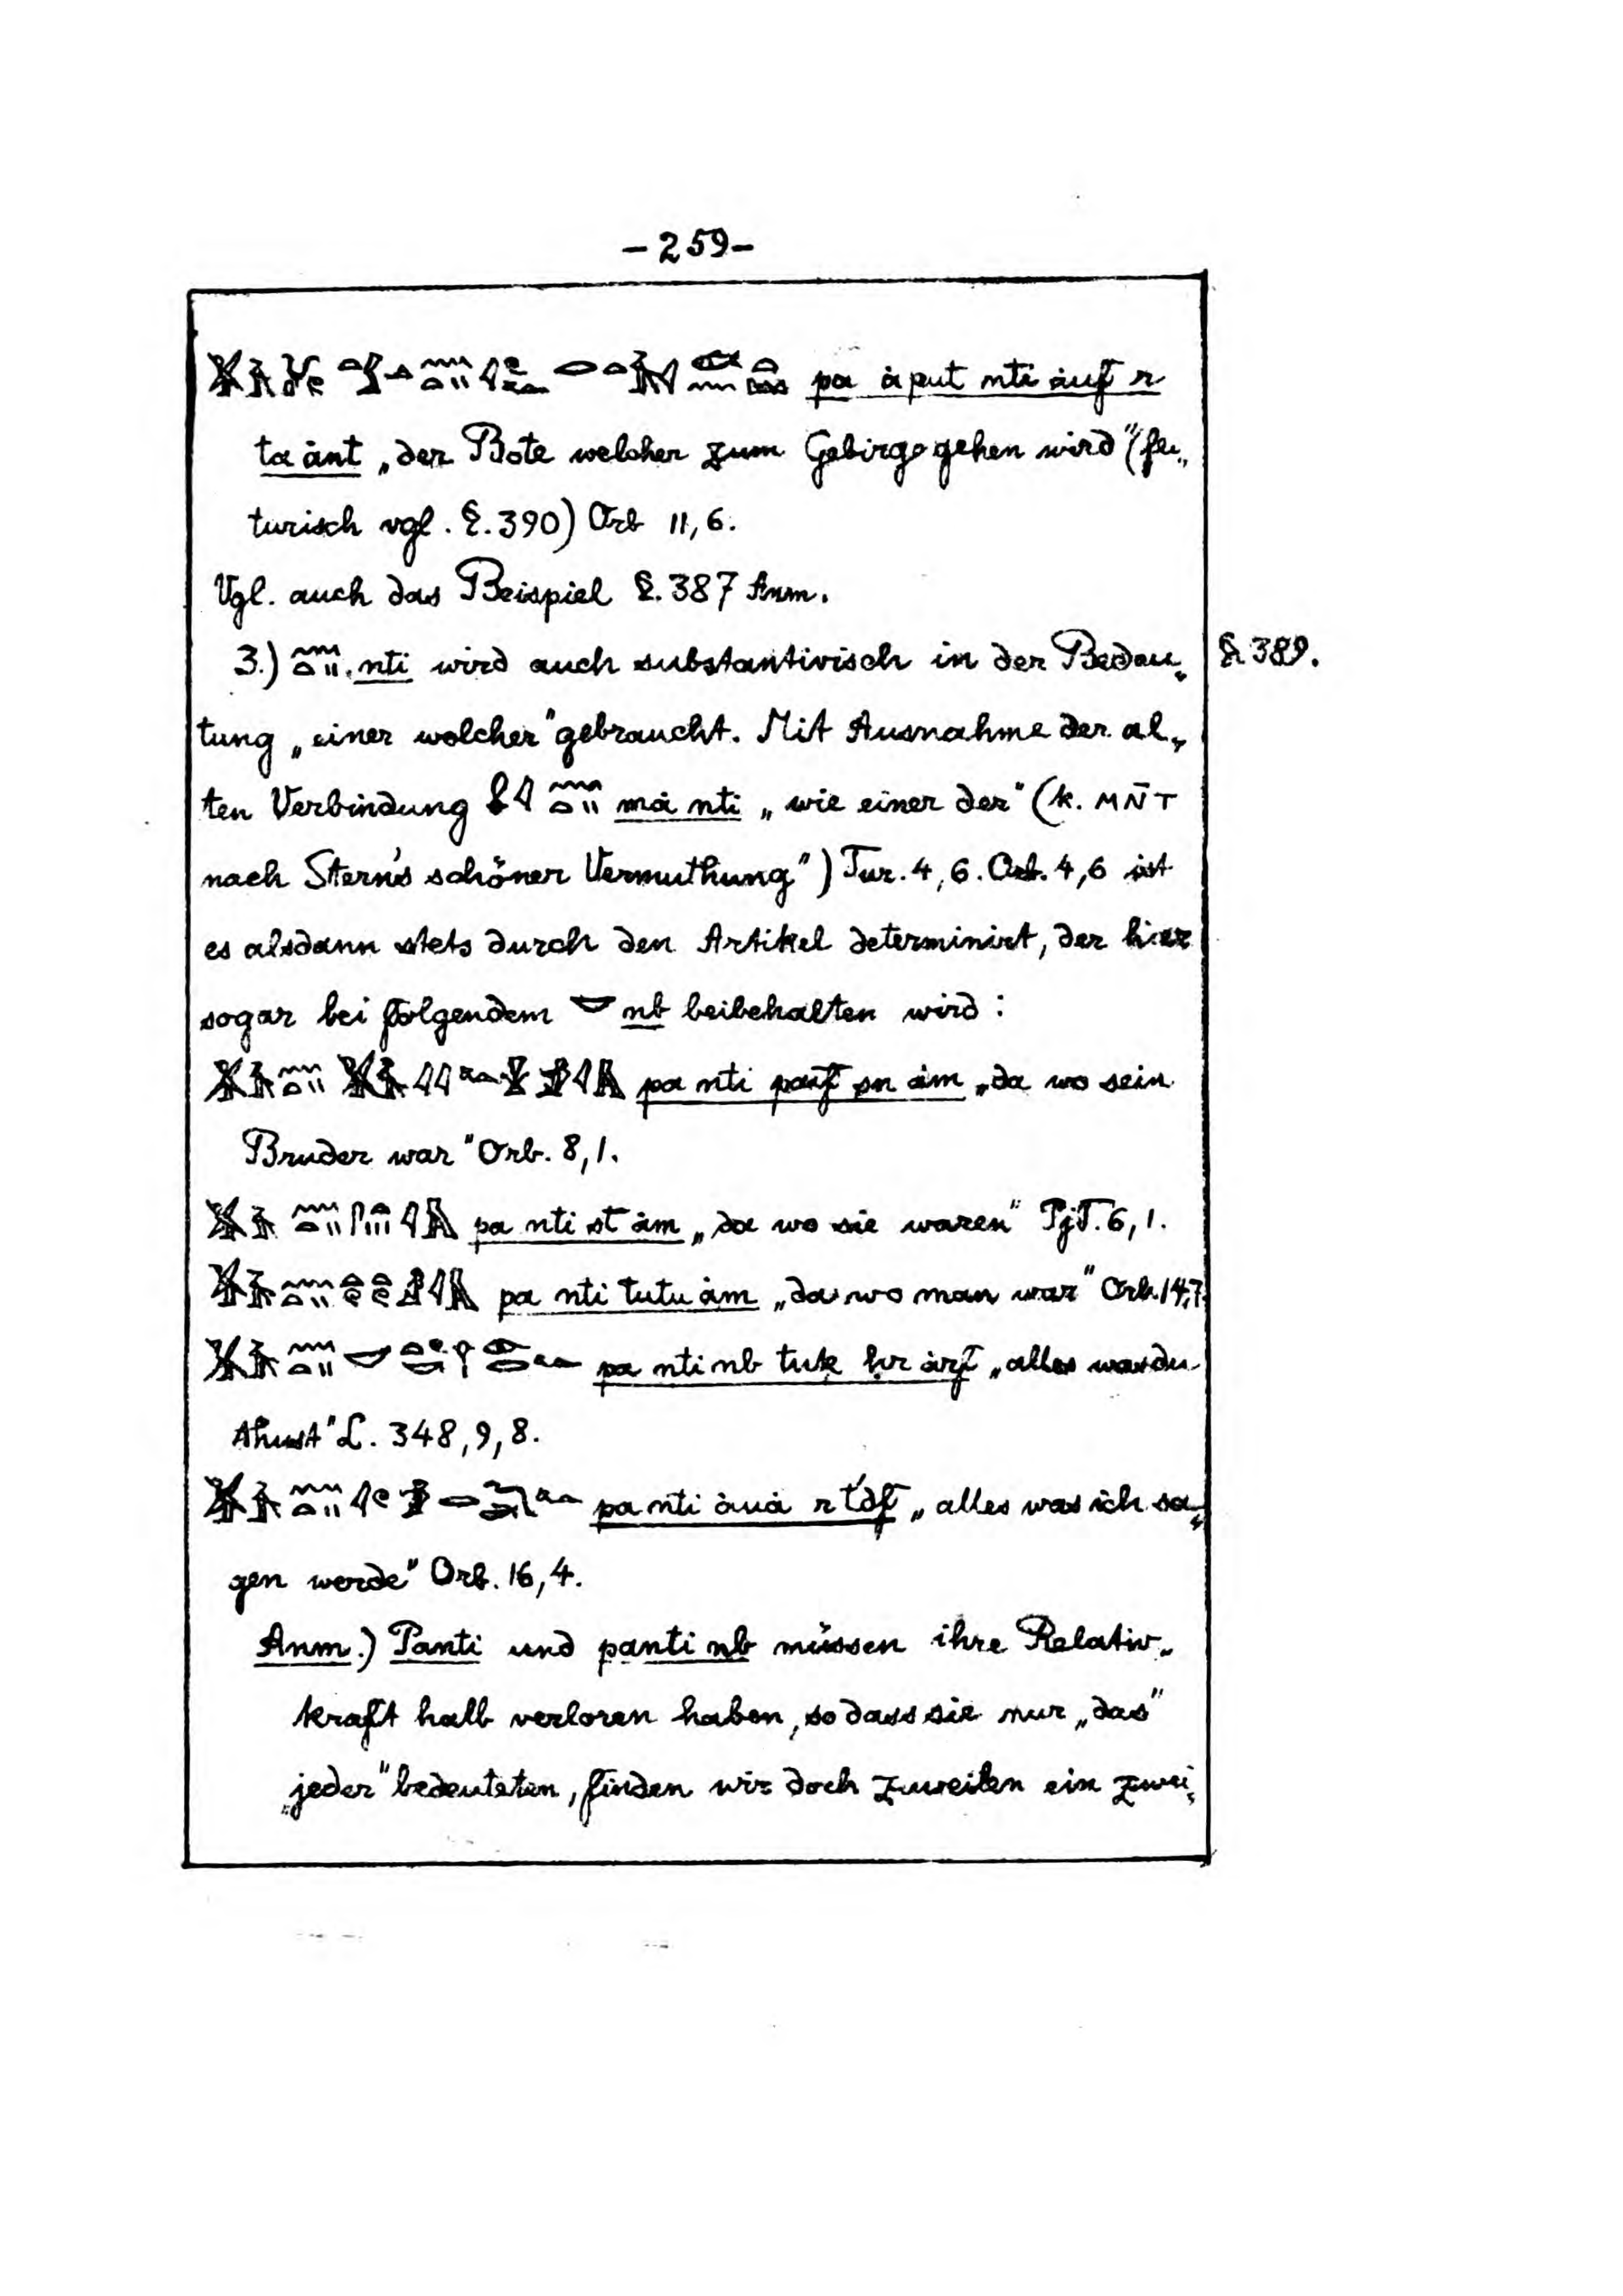 – 259 –
pa ȧput nti ȧuf r
ta ȧnt „der Bote welcher zum Gebirge gehen wird" (fu„
turisch vgl. §. 390) Orb 11, 6.
Vgl. auch das Beispiel §. 387 Anm.
3.) nti wird auch substantivisch in der Bedeu„ § 389.
tung „einer welcher" gebraucht. Mit Ausnahme der al„
ten Verbindung mȧ nti „wie einer der" (k. ⲙⲛ̄ⲧ
nach Stern's schöner Vermuthung") Tur. 4, 6. Orb. 4, 6 ist
es alsdann stets durch den Artikel determinirt, der hier
sogar bei folgendem nb beibehalten wird:
pa nti paif sn ȧm „da wo sein
Bruder war" Orb. 8, 1.
pa nti st ȧm „da wo sie waren" PjT. 6, 1.
pa nti tutu ȧm „da wo man war" Orb. 14, 7.
pa nti nb tuk ḥr ȧrf „alles was du
thust" L. 348, 9, 8.
pa nti ȧuȧ r t'df „alles was ich sa„
gen werde" Orb. 16, 4.
Anm.) Panti und panti nb müssen ihre Relativ„
kraft halb verloren haben, so dass sie nur „das"
„jeder" bedeuteten, finden wir doch zuweilen ein zwei„